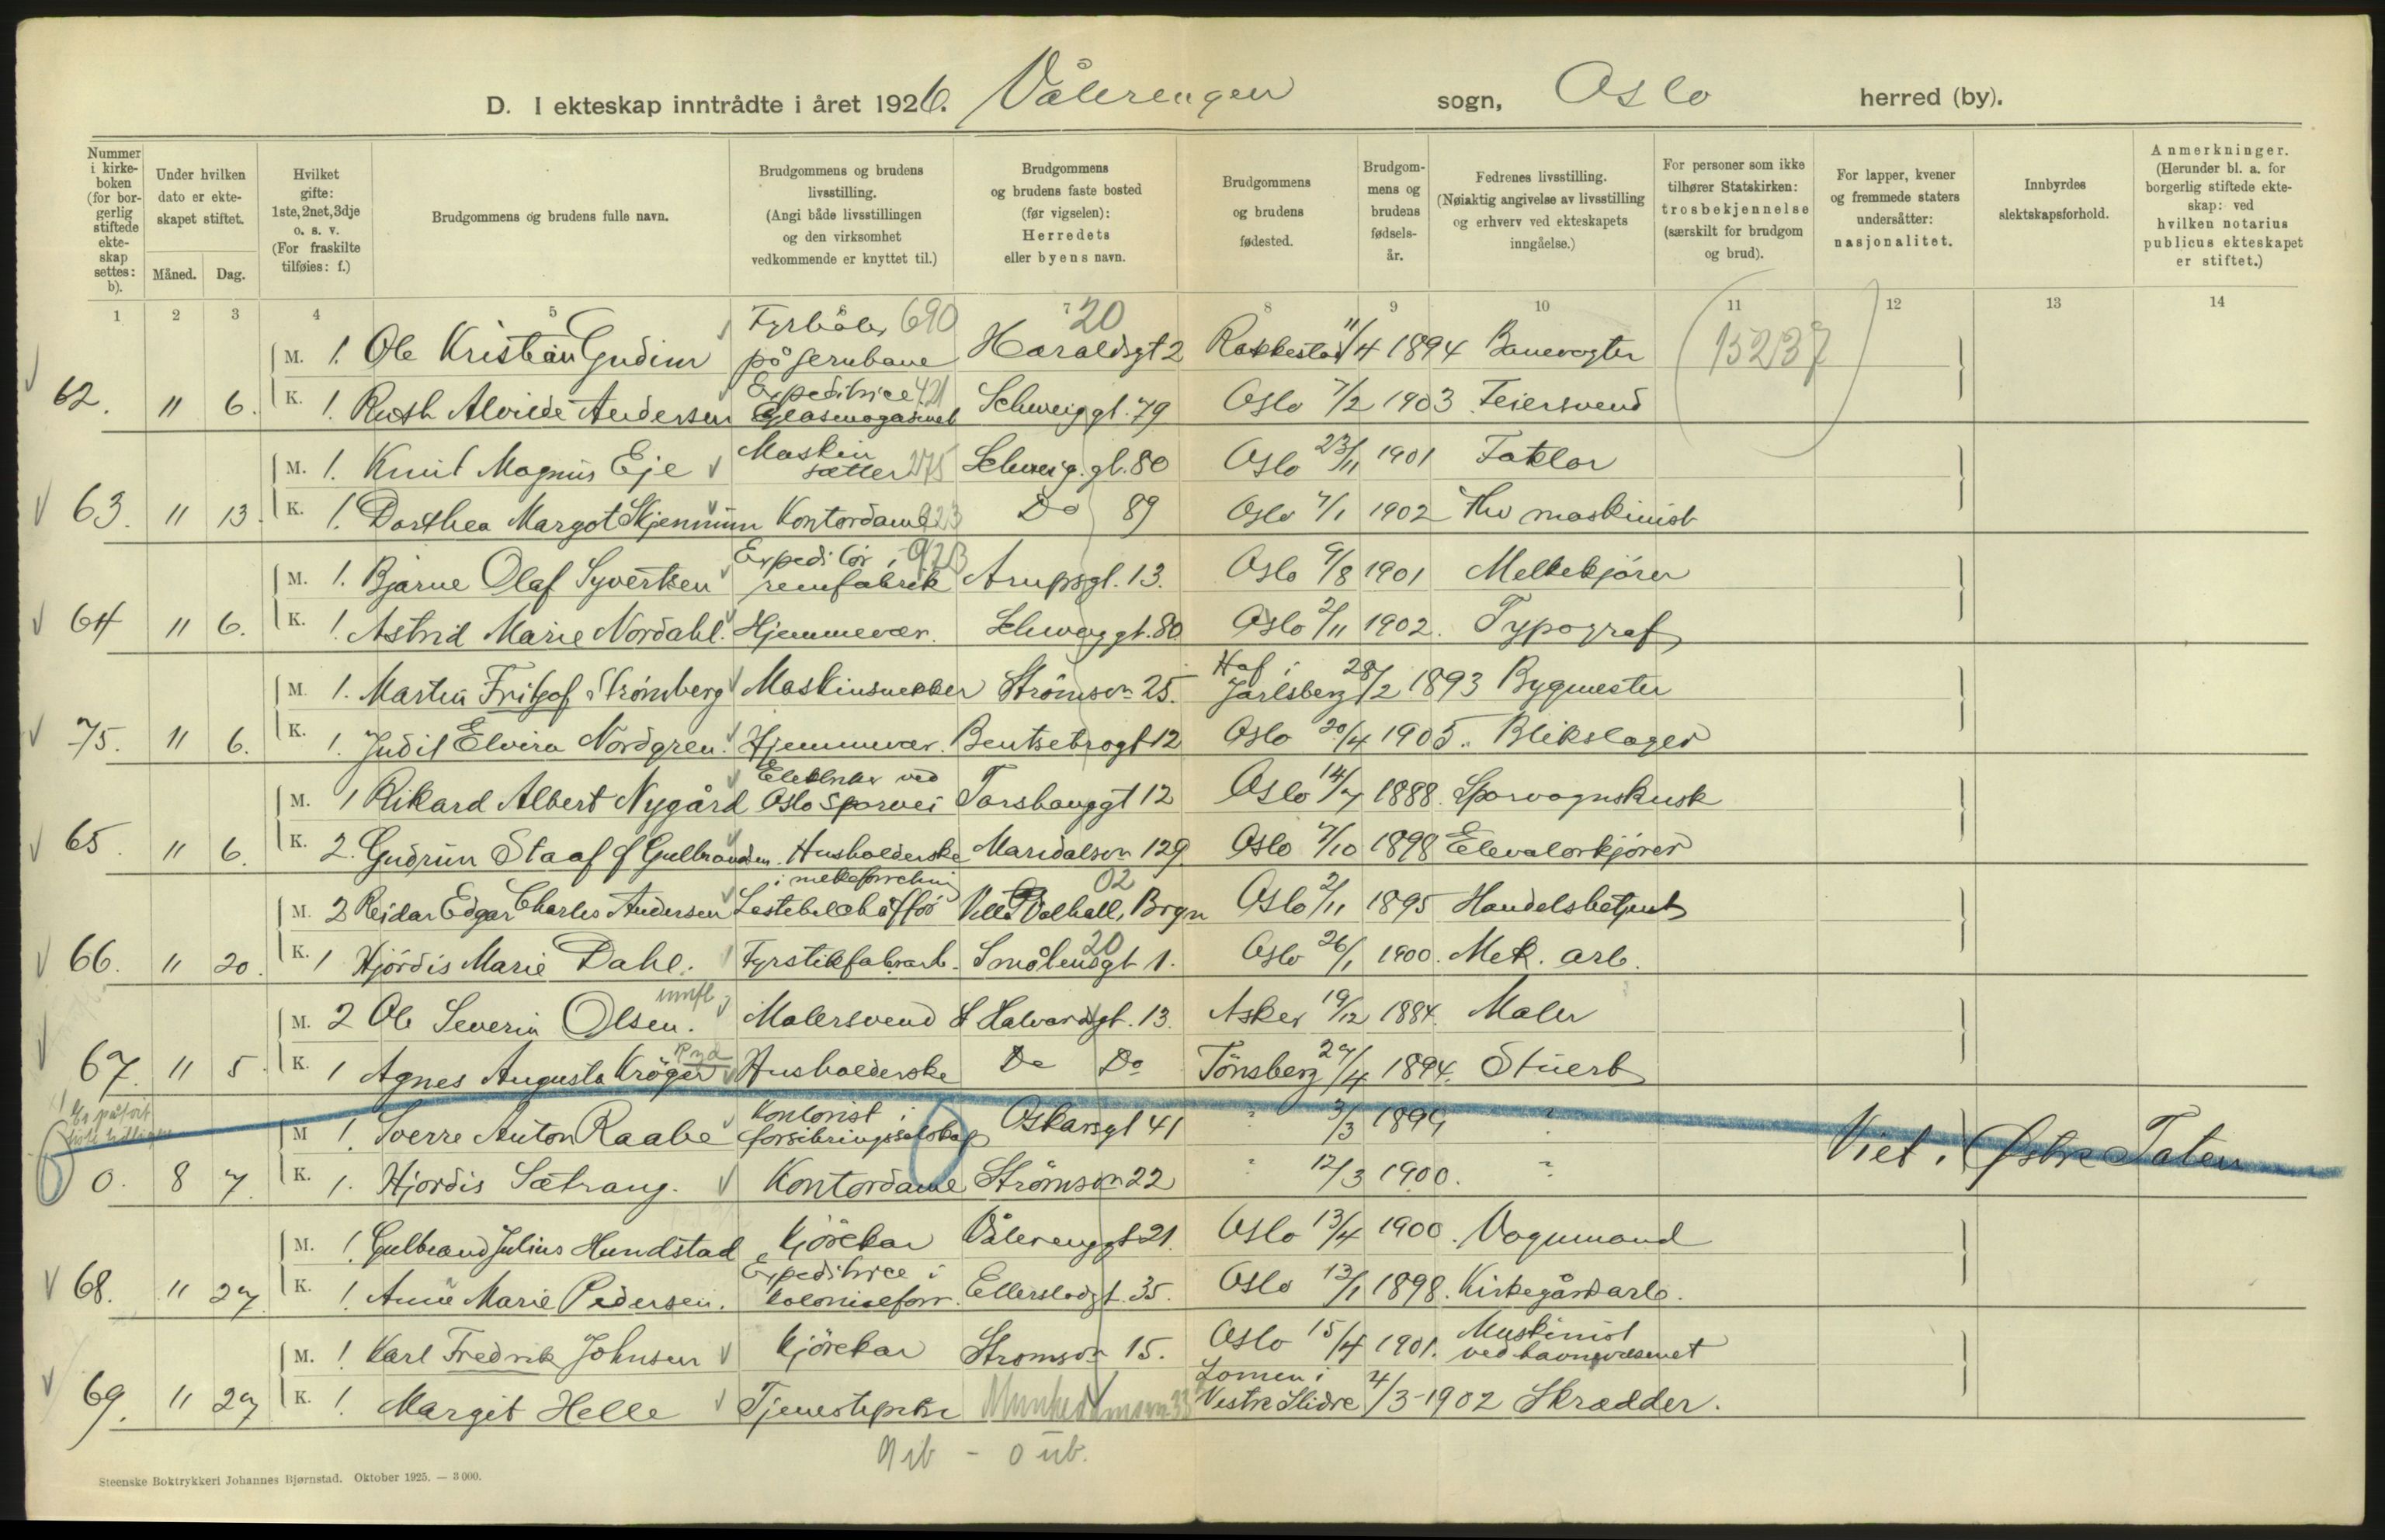 D. I ekteskap inntrådte i året 1926. Vålerengen sogn, Oslo herred (by).
Nummer i kirkeboken (for borgerlig stiftede ekteskap settes: b).
Under hvilken dato er ekteskapet stiftet.
Måned. Dag.
Hvilket gifte: 1ste, 2net, 3dje o. s. v. (For fraskilte tilføies: f.)
Brudgommens og brudens fulle navn.
Brudgommens og brudens livsstilling. (Angi både livsstillingen og den virksomhet vedkommende er knyttet til.)
Brudgommens og brudens faste bosted (før vigselen): Herredets eller byens navn.
Brudgommens og brudens fødested.
Brudgommens og brudens fødselsår.
Fedrenes livsstilling. (Nøiaktig angivelse av livsstilling og erhverv ved ekteskapets inngåelse.)
For personer som ikke tilhører Statskirken: trosbekjennelse (særskilt for brudgom og brud).
For lapper, kvener og fremmede staters undersåtter: nasjonalitet.
Innbyrdes slektskapsforhold.
Anmerkninger. (Herunder bl. a. for borgerlig stiftede ekteskap: ved hvilken notarius publicus ekteskapet er stiftet.)
1 2 3 4 5 7 8 9 10 11 12 13 14
Fyrbøter 690 20
M. 1. Ole Kristian Gudim på jernbane Haraldsgt 2 Rakkestad 11/4 1894 Banevogter 15237
Expeditrice 421
62. " 6. K. 1. Ruth Alvilde Andersen Glasmagasinet Schweiggt. 79 Oslo 7/2 1903 Feiersvend
M. 1. Knut Magnus Eje Maskinsætter 275 Schweig.gt. 80 Oslo 23/11 1901 Faktor
63. " 13. K. 1. Dorthea Margot Skjennum Kontordame 923 Do 89 Oslo 7/1 1902 Fhv maskinist
Expeditør i 923
M. 1. Bjarne Olaf Syvertsen remfabrik Arupsgt. 13. Oslo 9/8 1901 Melkekjører
64 " 6. K. 1. Astrid Marie Nordahl. Hjemmevær. Schweiggt. 80 Oslo 2/11 1902. Typograf
Hof i
M. 1. Martin Fritjof Strömberg Maskinsnekker Strömsvn 25. Jarlsberg 28/2 1893 Bygmester
75. " 6. K. 1. Judit Elvira Nordgren. Hjemmevær. Bentsebrogt 12 Oslo 20/4 1905. Blikslager
Elektriker ved
M. 1 Rikard Albert Nygård Oslo Sporvei Torshauggt 12 Oslo 14/7 1888. Sporvognskusk
65. " 6. K. 2. Gudrun Staaf f Gulbrandsen. Husholderske Maridalsvn 129 Oslo 7/10 1898 Elevatorkjører
i melkeforretning 02
M. 2 Reidar Edgar Charles Andersen Lastebilchaffør Villa Valhall, Bryn Oslo 2/11 1895 Handelsbetjent
66. " 20. K. 1 Hjördis Marie Dahl. Fyrstikfabrarb. Smålensgt 1. 20 Oslo 26/1 1900. Mek. arb.
innfl
M. 2 Ole Severin Olsen. Malersvend St Halvardsgt. 13. Asker 19/12 1884. Maler
67. " 5. K. 1 Agnes Augusta Kröger Husholderske Do Do Tönsberg 27/4 1894. Stuert
Kontorist i
M 1. Sverre Anton Raabe forsikringsselskap Oskarsgt 41 " 3/3 1899 " Viet i Østre Toten
0. 8 7. K. 1. Hjordis Sætrang. Kontordame Strömsvn 22 " 12/3 1900. "
M. 1. Gulbrand Julius Hundstad Kjörekar Vålerenggt 21. Oslo 13/4 1900. Vognmand
Expeditrice i
68. " 27 K. 1. Anne Marie Pedersen. kolonialforr. Ellerslodgt. 35. Oslo 13/1 1898. Kirkegårdsarb.
M. 1. Karl Fredrik Johnsen Kjörekar Strömsvn 15. Oslo 15/4 1901. Maskinist ved havnevæsenet
Lomen i
69. " 27 K. 1. Margit Helle Tjenestepike Munkedamsvn 33 Vestre Slidre 4/3 1902 Skrædder.
9 ib - 0 ub.
Steenske Boktrykkeri Johannes Bjørnstad. Oktober 1925. — 3 000.